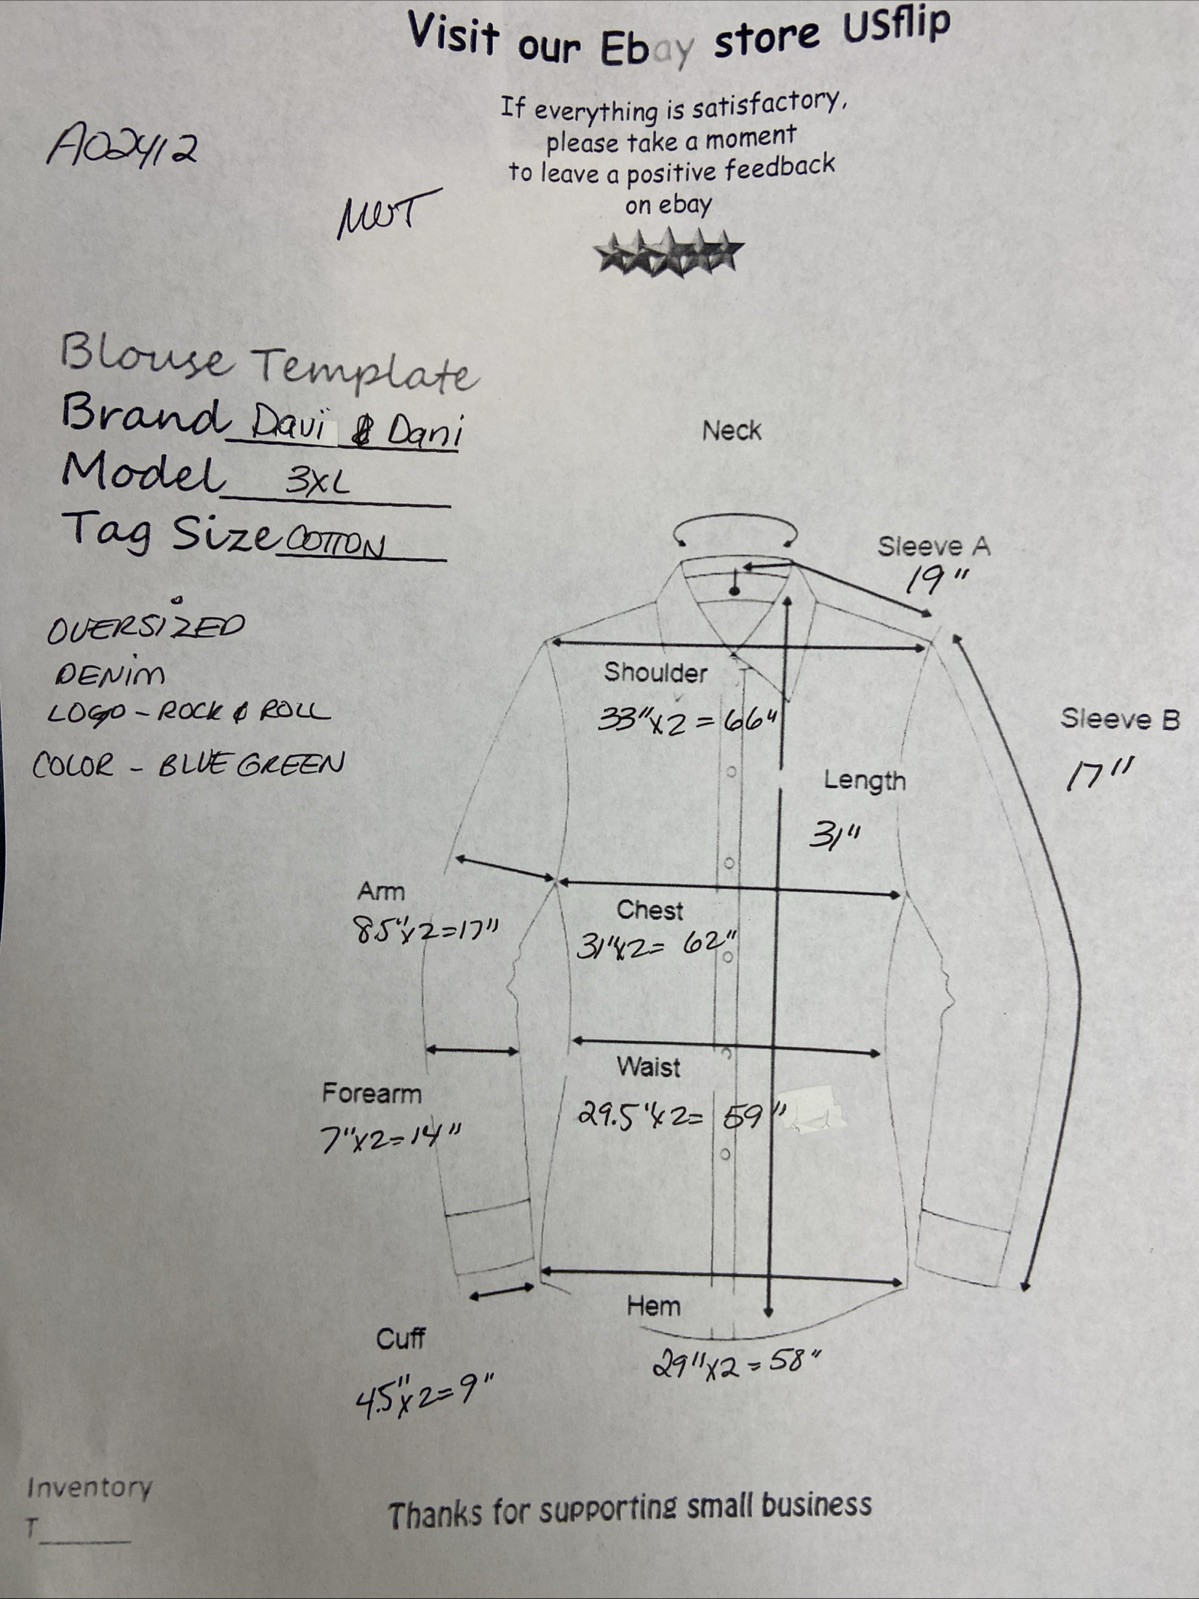 Visit our Ebay store USflip
If everything is satisfactory,
please take a moment
to leave a positive feedback
on ebay
A02412
NWT
Blouse Template
Brand Davi & Dani
Model 3XL
Tag Size COTTON
OVERSIZED
DENIM
LOGO - ROCK & ROLL
COLOR - BLUE GREEN
Neck
Sleeve A
19"
Shoulder
33"x2 = 66"
Sleeve B
17"
Length
31"
Arm
8.5"x2=17"
Chest
31"x2= 62"
Waist
29.5"x2= 59"
Forearm
7"x2=14"
Hem
29"x2=58"
Cuff
4.5"x2=9"
Inventory
T
Thanks for supporting small business